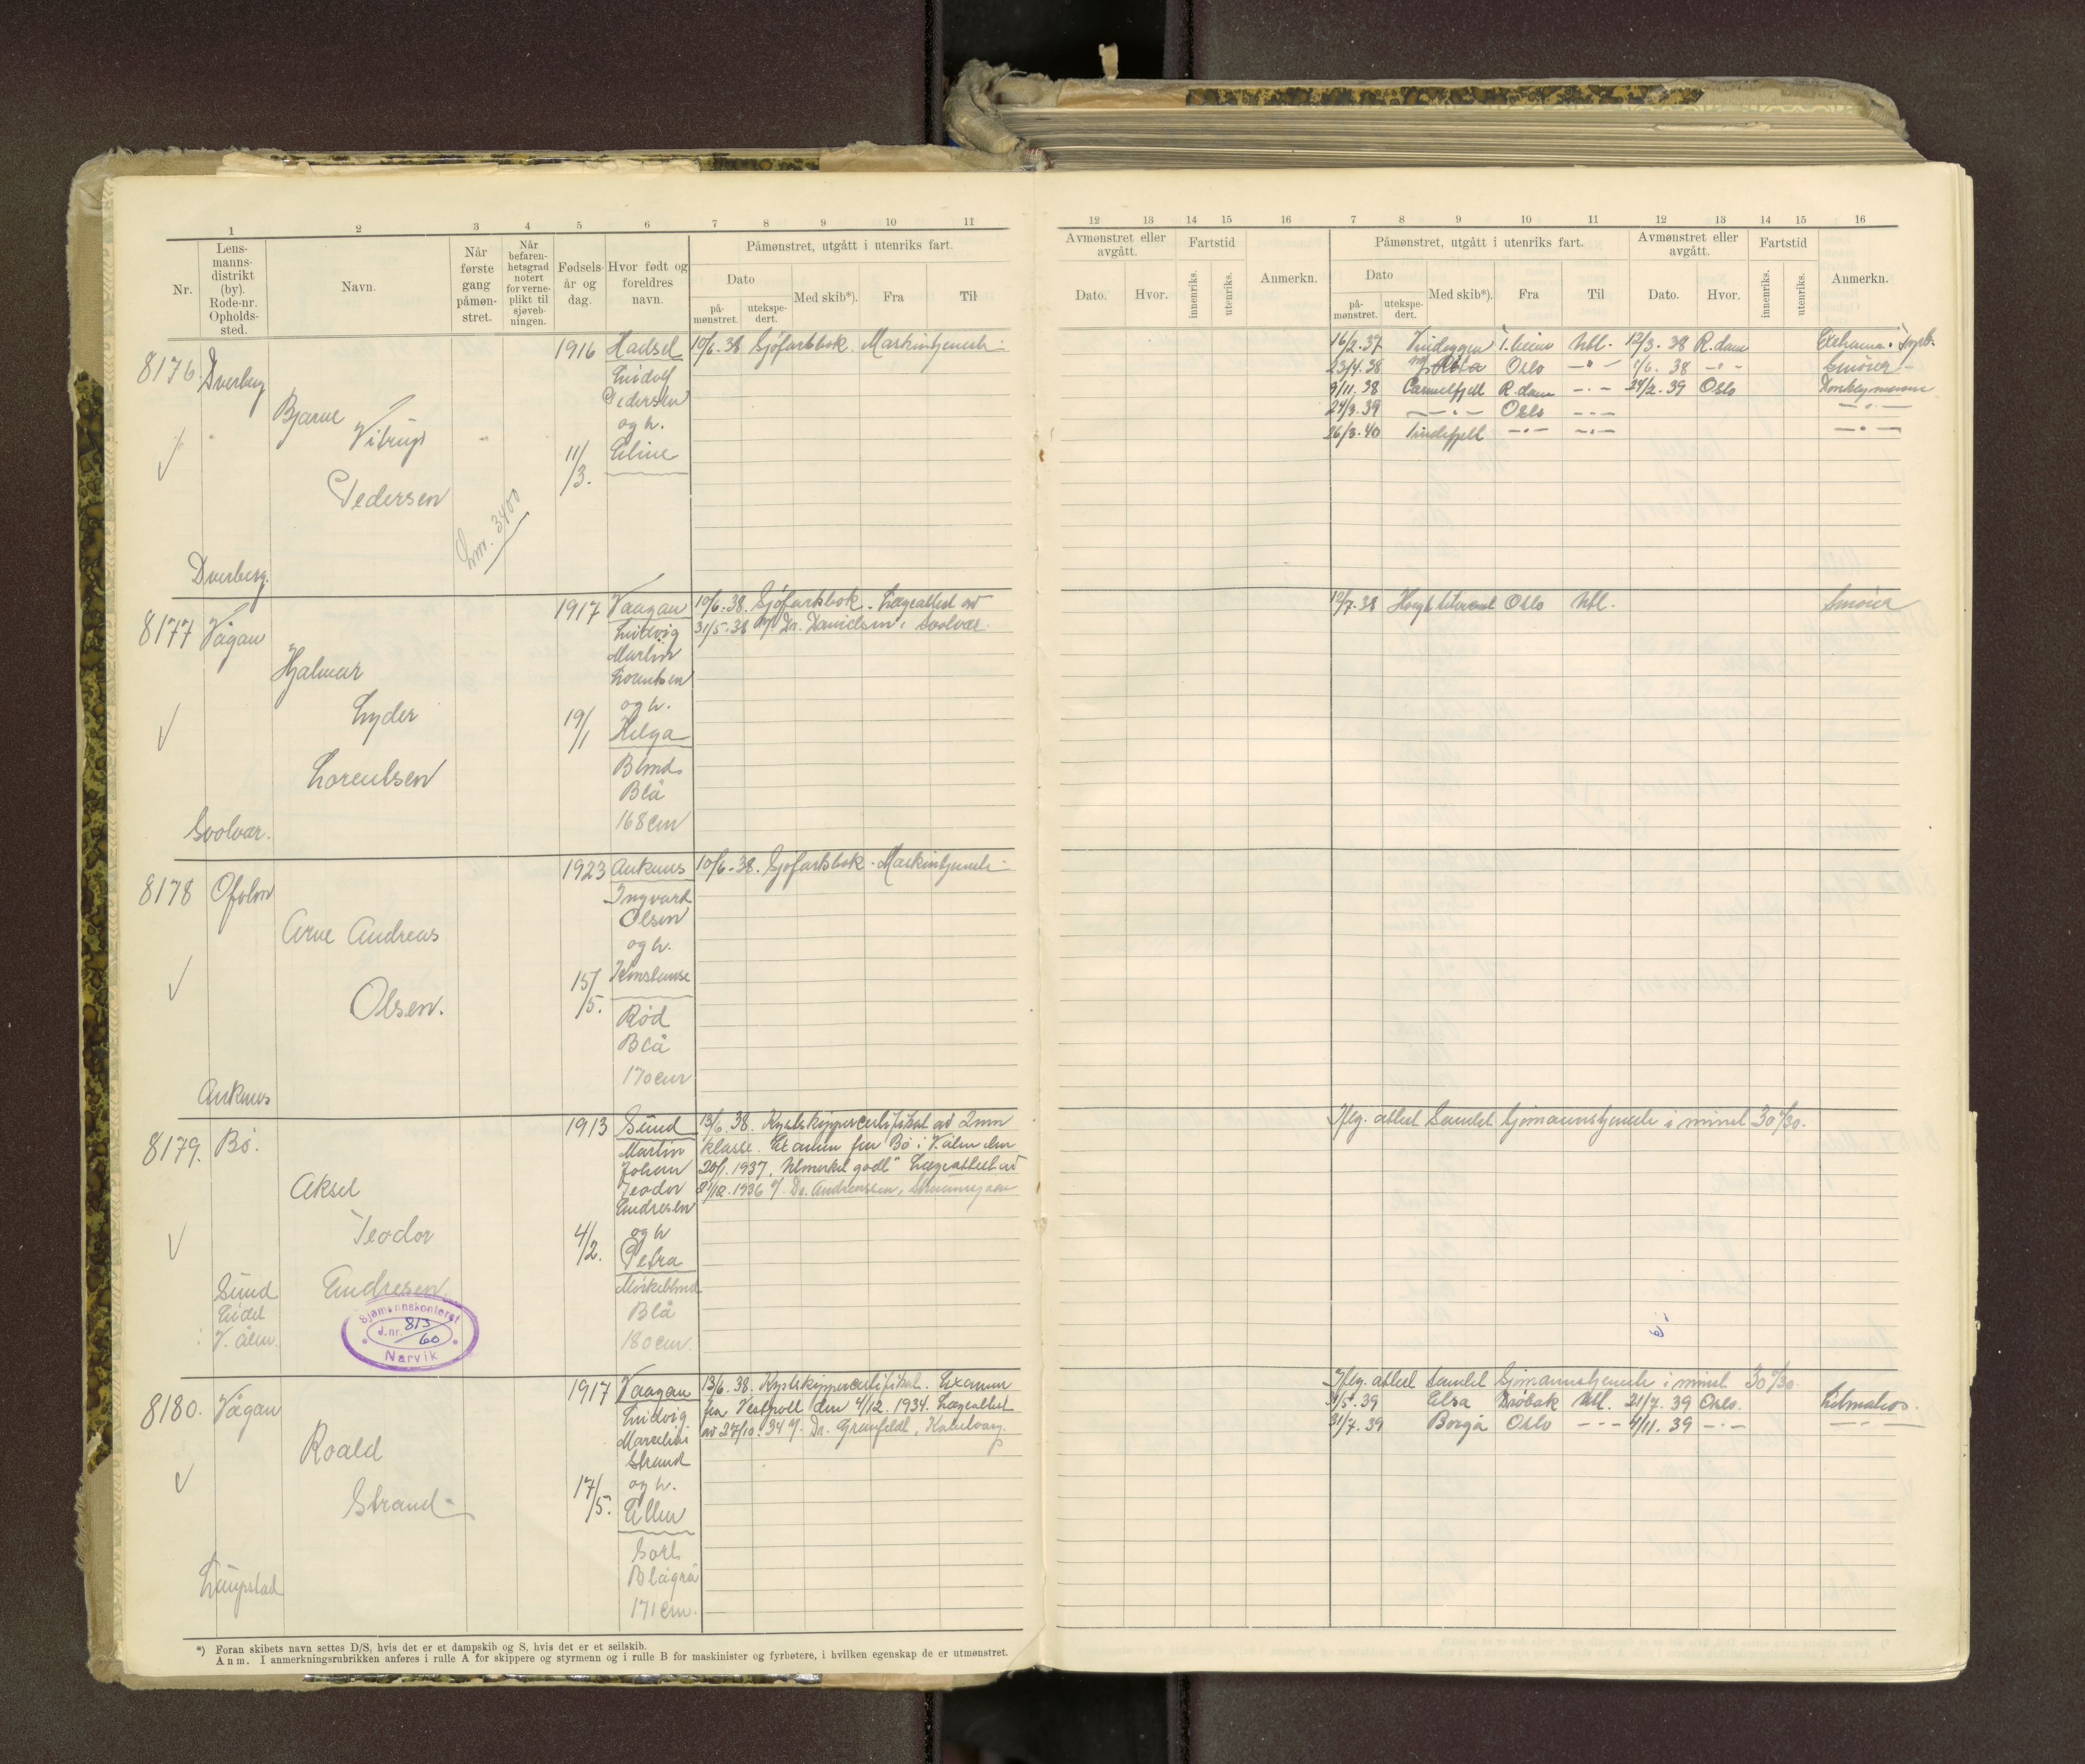 1 2 3 4 5 6 7 8 9 10 11
Nr.
Lens-
manns-
distrikt
(by).
Rode-nr.
Opholds-
sted.
Navn.
Når
første
gang
påmøn-
stret.
Når
befaren-
hetsgrad
notert
for verne-
plikt til
sjøveb-
ningen.
Fødsels-
år og
dag.
Hvor født og
foreldres
navn.
Påmønstret, utgått i utenriks fart.
Dato
på-
mønstret.
utekspe-
dert.
Med skib*).
Fra
Til
8176. Dverberg
Bjarne
Vitrup
Pedersen
Lnr. 3400
Dverberg.
1916
11/3.
Hadsel
Pedersen
og h.
Eline
10/6-38 Sjøfartsbok. Maskintjeneste
8177 Vågan
Hjalmar
Lyder
Lorentsen
Svolvær.
1917
19/1
Vaagan
Ludvig
Martin
Lorentsen
og h.
Helga
Blond
Blå
168 cm
10/6-38. Sjøfartsbok. Lægeattest av
31/5-38 v/ Dr. Danielsen, Svolvær.
8178 Ofoten
Arne Andreas
Olsen.
Ankenes
1923
15/5.
Ankenes
Ingvard
Olsen
og h.
Konstanse
Rød
Blå
170 cm
10/6-38. Sjøfartsbok. Maskintjeneste
8179. Bø.
Aksel
Teodor
Andresen
Sund
Eidet
i V. ålen.
Sjømannskontoret
J.nr. 813/60
Narvik
1913
4/2.
Sund
Martin
Johan
Teodor
Andresen
og h
Petra
Mørkeblond
Blå
180 cm.
13/6. 38. Kystskippercertifikat av 2nen
klasse. Eksamen fra Bø i V.ålen den
20/1. 1937. Utmerket godt" Lægeattest av
/12. 1936 v/ Dr. Andreassen,
8180. Vågan
Roald
Strand
Laupstad
1917
17/5.
Vaagan
Ludvig
Marselius
Strand
og h.
Ellen
Sort
Blågrå
171 cm.
13/6. 38. Kystskippercertifikat. Examen
fra Vestpoll den 4/12. 1934. Lægeattest
av 27/10. 34 v/ Dr. Grunfeldt, Kabelvaag.
*) Foran skibets navn settes D/S, hvis det er et dampskib og S, hvis det er et seilskib.
Anm. I anmerkningsrubrikken anføres i rulle A for skippere og styrmenn og i rulle B for maskinister og fyrbøtere, i hvilken egenskap de er utmønstret.
12 13 14 15 16 7 8 9 10 11 12 13 14 15 16
Avmønstret eller
avgått.
Dato.
Hvor.
Fartstid
innenriks.
utenriks.
Anmerkn.
Påmønstret, utgått i utenriks fart.
Dato
på-
mønstret.
utekspe-
dert.
Med skib*).
Fra
Til
Avmønstret eller
avgått.
Dato.
Hvor.
Fartstid
innenriks.
utenriks.
Anmerkn.
16/2. 37 Vindeggen Utl. 12/3. 38 R.dam
23/4. 38 Oslo —"— 1/6. 38 —"— Smører
9/11. 38 Camelfjell R.dam —"— 24/2. 39 Oslo Donkeymann
24/3. 39 —"— Oslo —"— —"—
26/3. 40 Tindefjell —"— —"— —"—
10/7. 38 Høegh Silverlight Oslo Utl. Smører
Iflg. attest Samlet Sjømannstjeneste i minst 30 m/30.
Iflg. attest Samlet Sjømannstjeneste i minst 30 m/30.
/5. 39 Elsa Drøbak Utl. 21/7. 39 Oslo. Letmatros.
31/7. 39 Borgå Oslo —"— 4/11. 39 —"— —"—